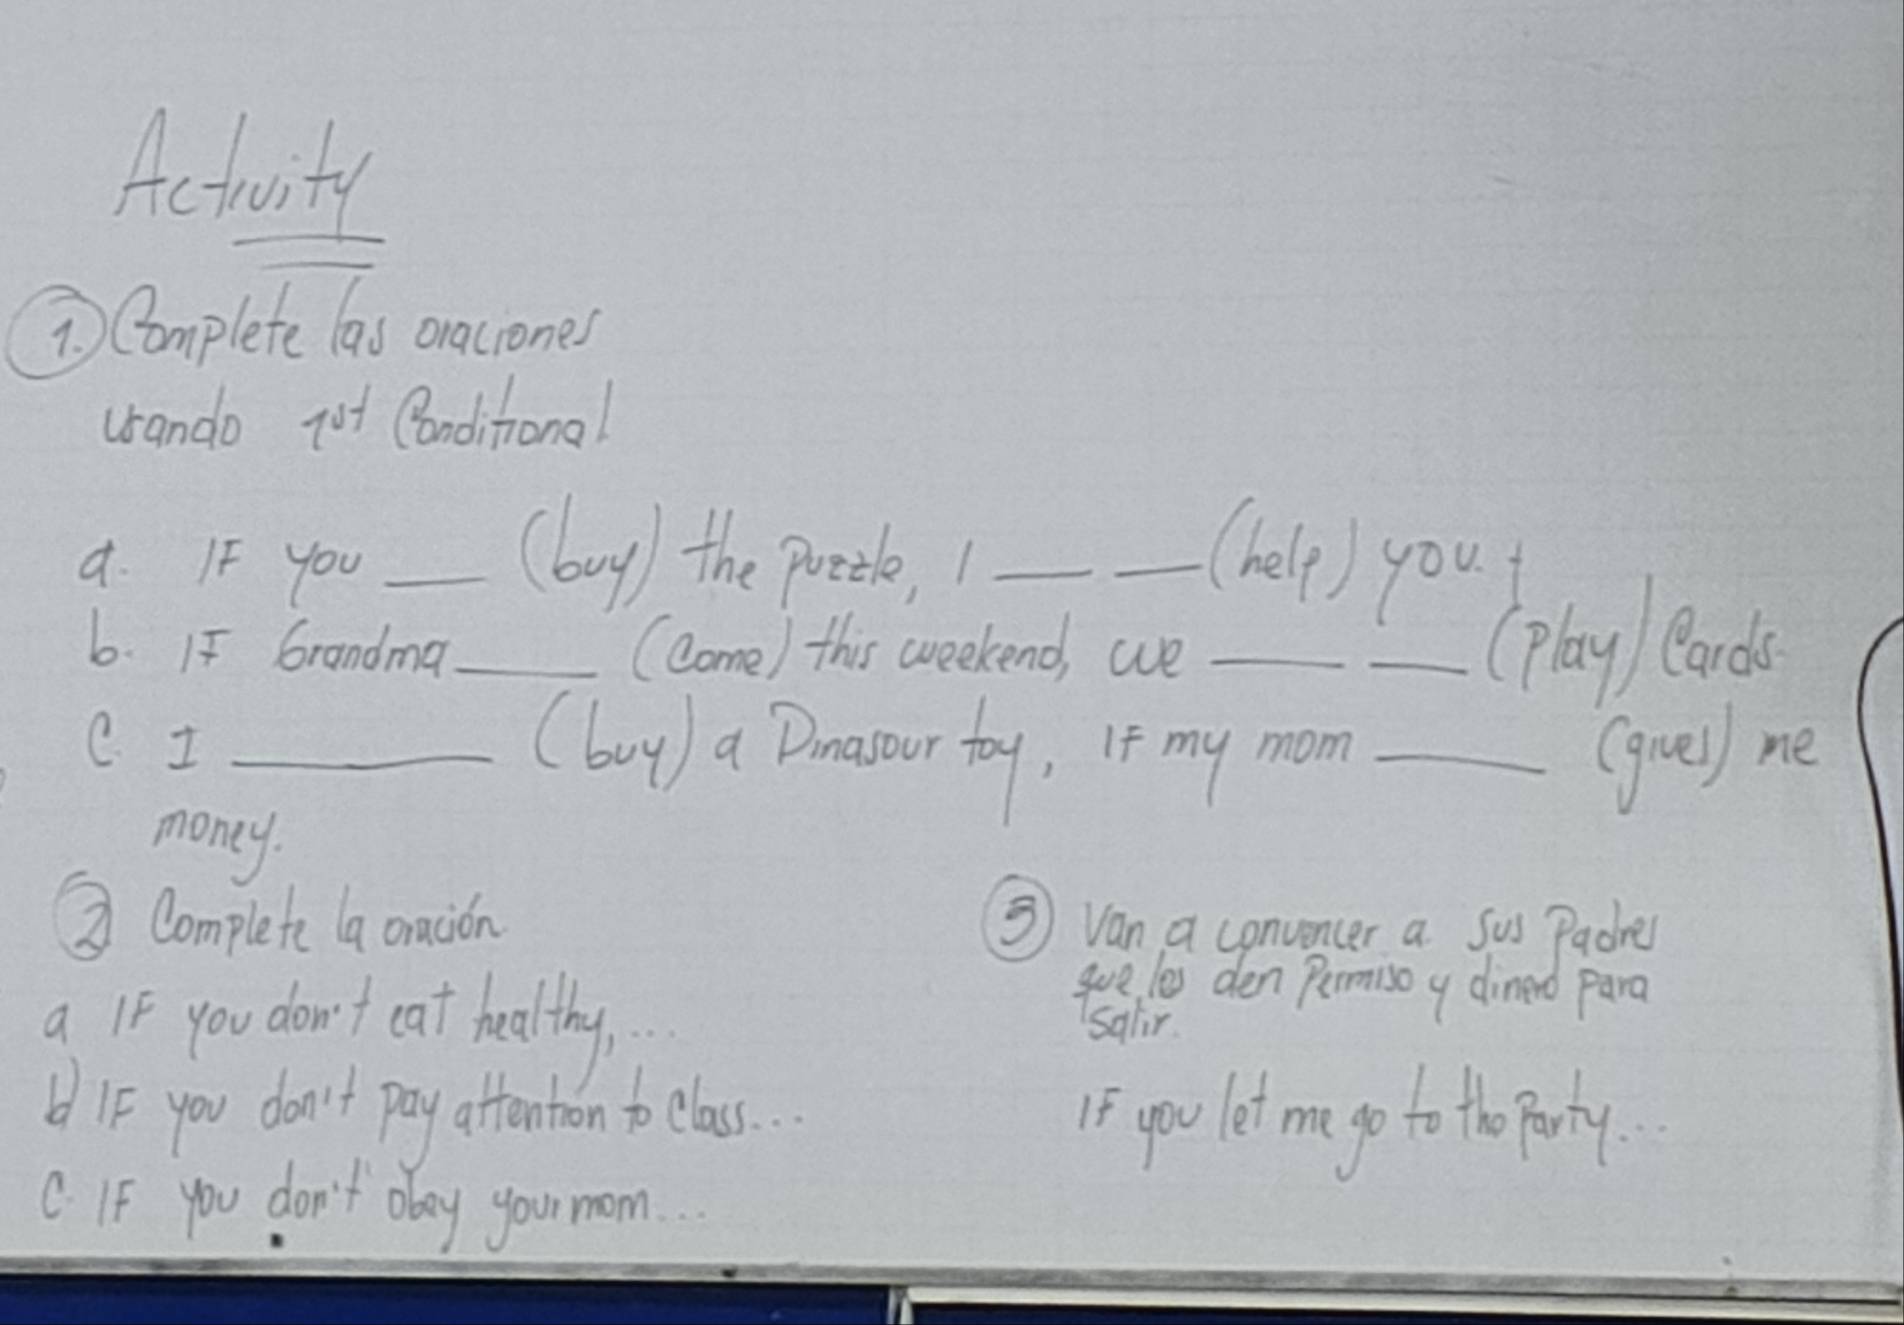 Activity
1. Complete las oraciones
usando 1st Conditional
a. IF you ___ (buy) the puzzle, I ___ ___ (help) you. +
b. IF Grandma ___ (Come) this weekend, we ___ ___ (Play) Cards.
C. I ___ (buy) a Dinasour toy, IF my mom ___ (gives) me
money.
2 Complete la oración
a IF you don't eat healthy, ...
b IF you don't pay attention to Class...
C. IF you don't obey your mom...
3 Van a convencer a sus Padres
que les den Permiso y dinero para
salir.
IF you let me go to the Party...